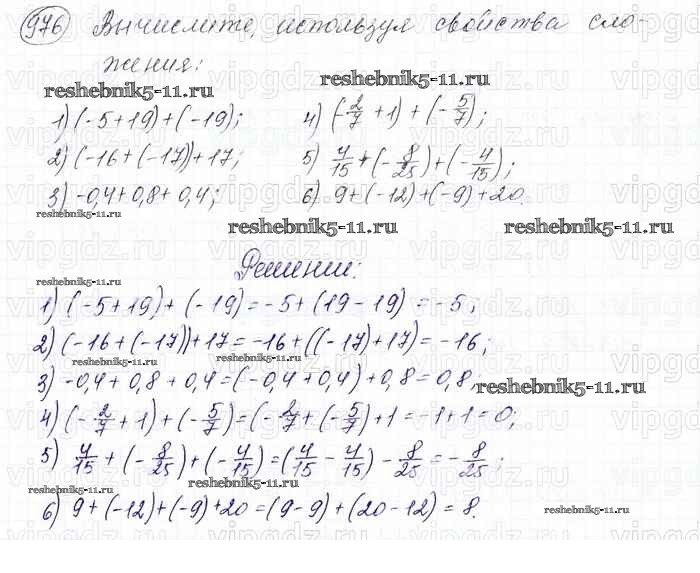 976) Вычислите, используя свойства сло-
жения:
reshebnik5-11.ru
reshebnik5-11.ru
1) (-5+19)+(-19);
4) (-2/7 + 1) + (-5/7);
2) (-16+(-17))+17;
5) 4/15 + (-8/25) + (-4/15);
3) -0,4+0,8+0,4;
6) 9+(-12)+(-9)+20.
reshebnik5-11.ru
reshebnik5-11.ru
reshebnik5-11.ru
Решение:
reshebnik5-11.ru
1) (-5+19)+(-19)=-5+(19-19)=-5;
2) (-16+(-17))+17=-16+((-17)+17)=-16;
reshebnik5-11.ru
3) -0,4+0,8+0,4=(-0,4+0,4)+0,8=0,8;
reshebnik5-11.ru
4) (-2/7+1)+(-5/7)=(-2/7+(-5/7)+1=-1+1=0;
5) 4/15+(-8/25)+(-4/15)=(4/15-4/15)-8/25=-8/25;
reshebnik5-11.ru
reshebnik5-11.ru
6) 9+(-12)+(-9)+20=(9-9)+(20-12)=8.
reshebnik5-11.ru